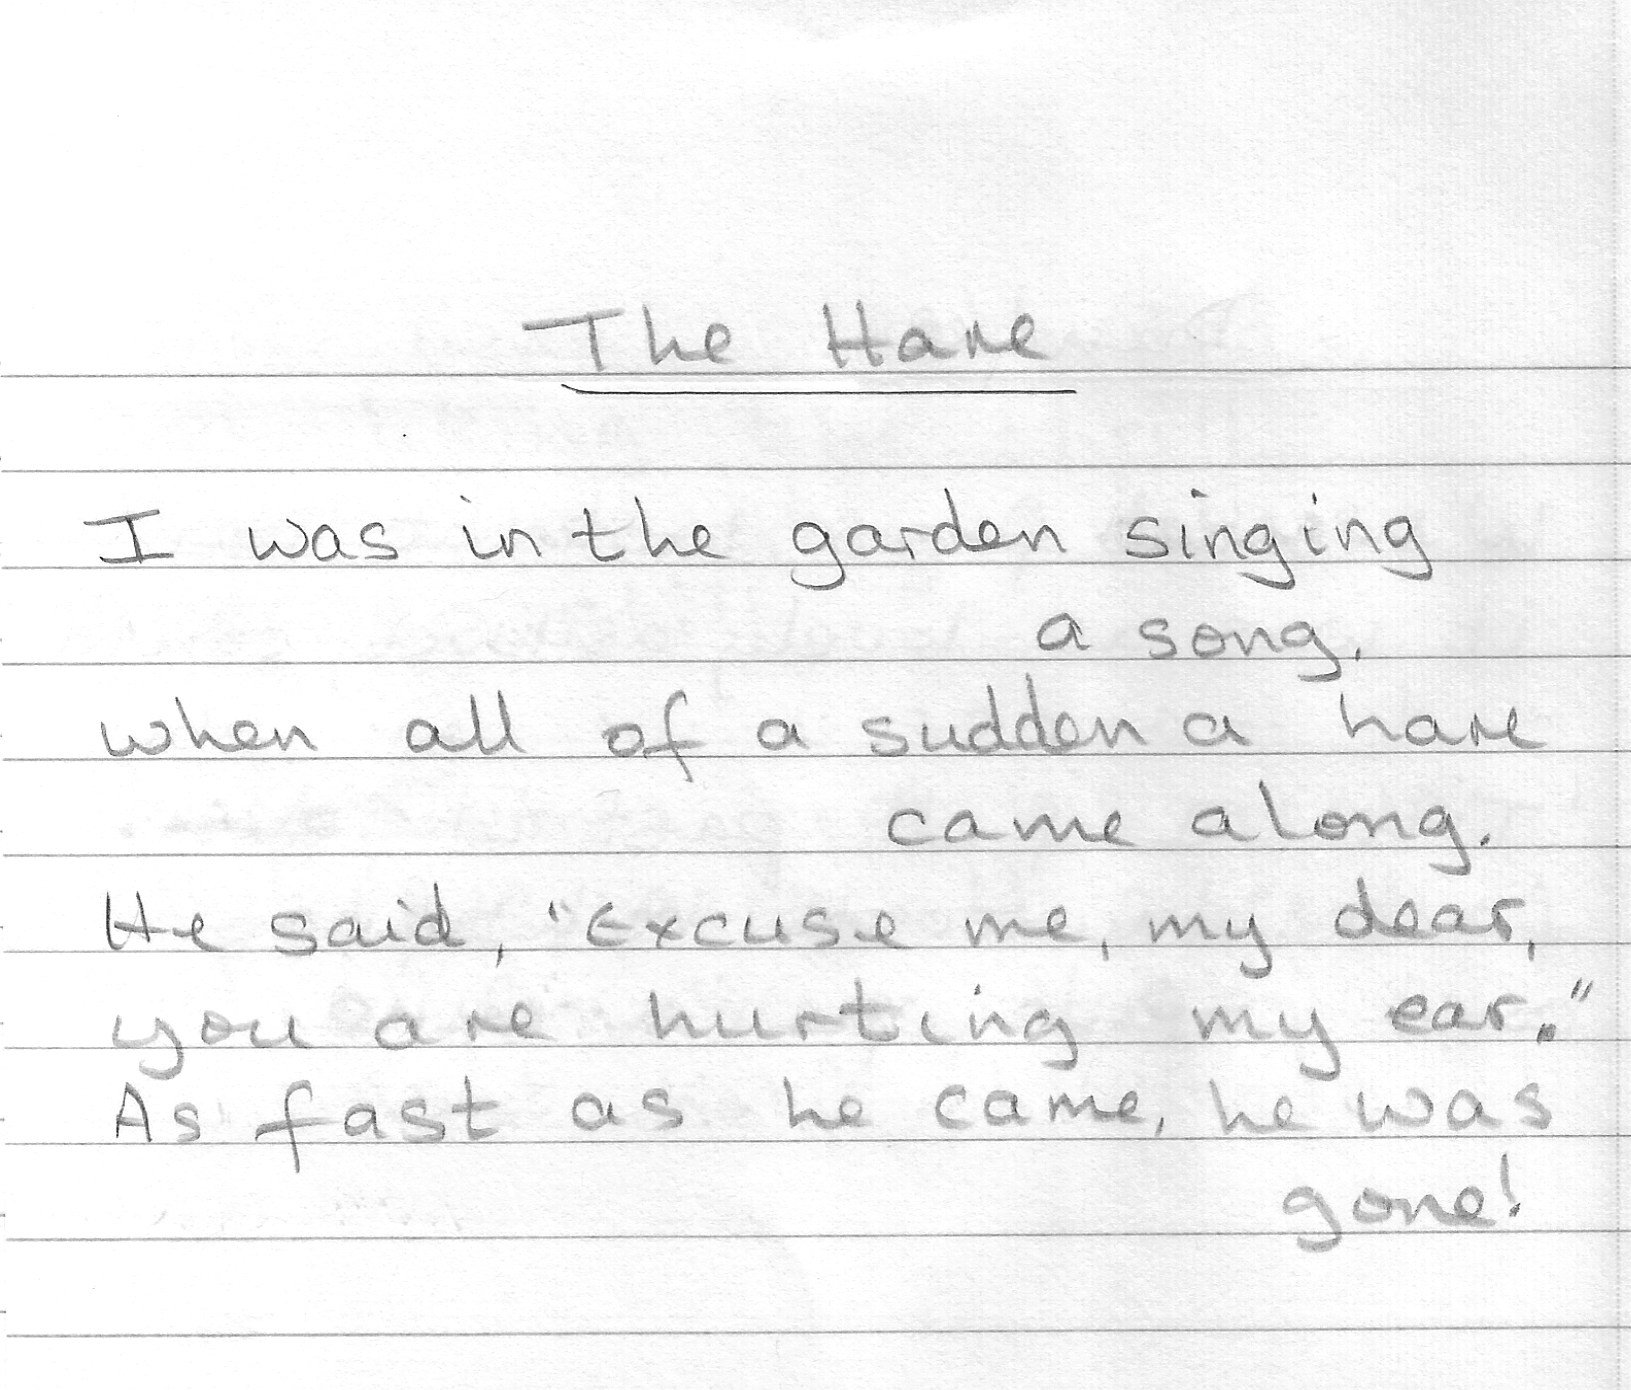 The Hare
I was in the garden singing
a song,
when all of a sudden a hare
came along.
He said, "Excuse me, my dear,
you are hurting my ear."
As fast as he came, he was
gone!